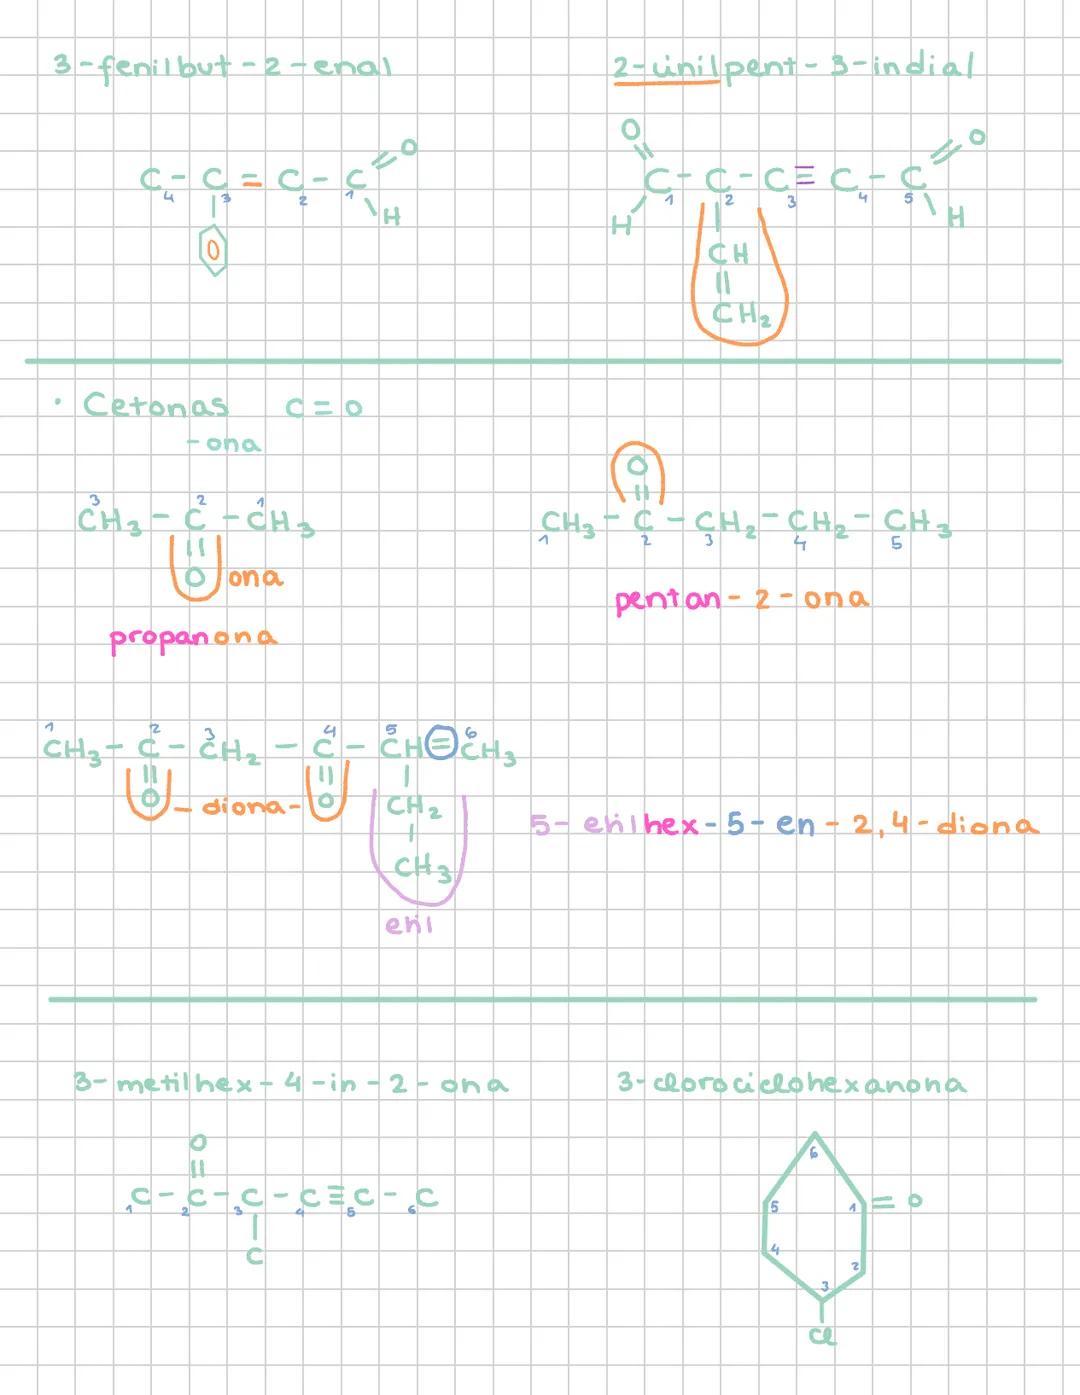 3-fenilbut-2-enal
2-vinilpent-3-indial
C - C = C - C = O
4 3 2 1
H
O
C - C - C ≡ C - C = O
H 1 2 3 4 5 H
CH
=
CH₂
· Cetonas C = O
-ona
3 2 1
CH₃ - C - CH₃
=
O ona
propanona
O
=
CH₃ - C - CH₂ - CH₂ - CH₃
1 2 3 4 5
pentan-2-ona
1 2 3 4 5 6
CH₃ - C - CH₂ - C - CH = CH₃
O - diona - O
CH₂
CH₃
etil
5-etilhex-5-en-2,4-diona
3-metilhex-4-in-2-ona
O
=
C - C - C - C ≡ C - C
1 2 3 4 5 6
C
3-clorociclohexanona
6
5 1 = O
4 2
3
Cl